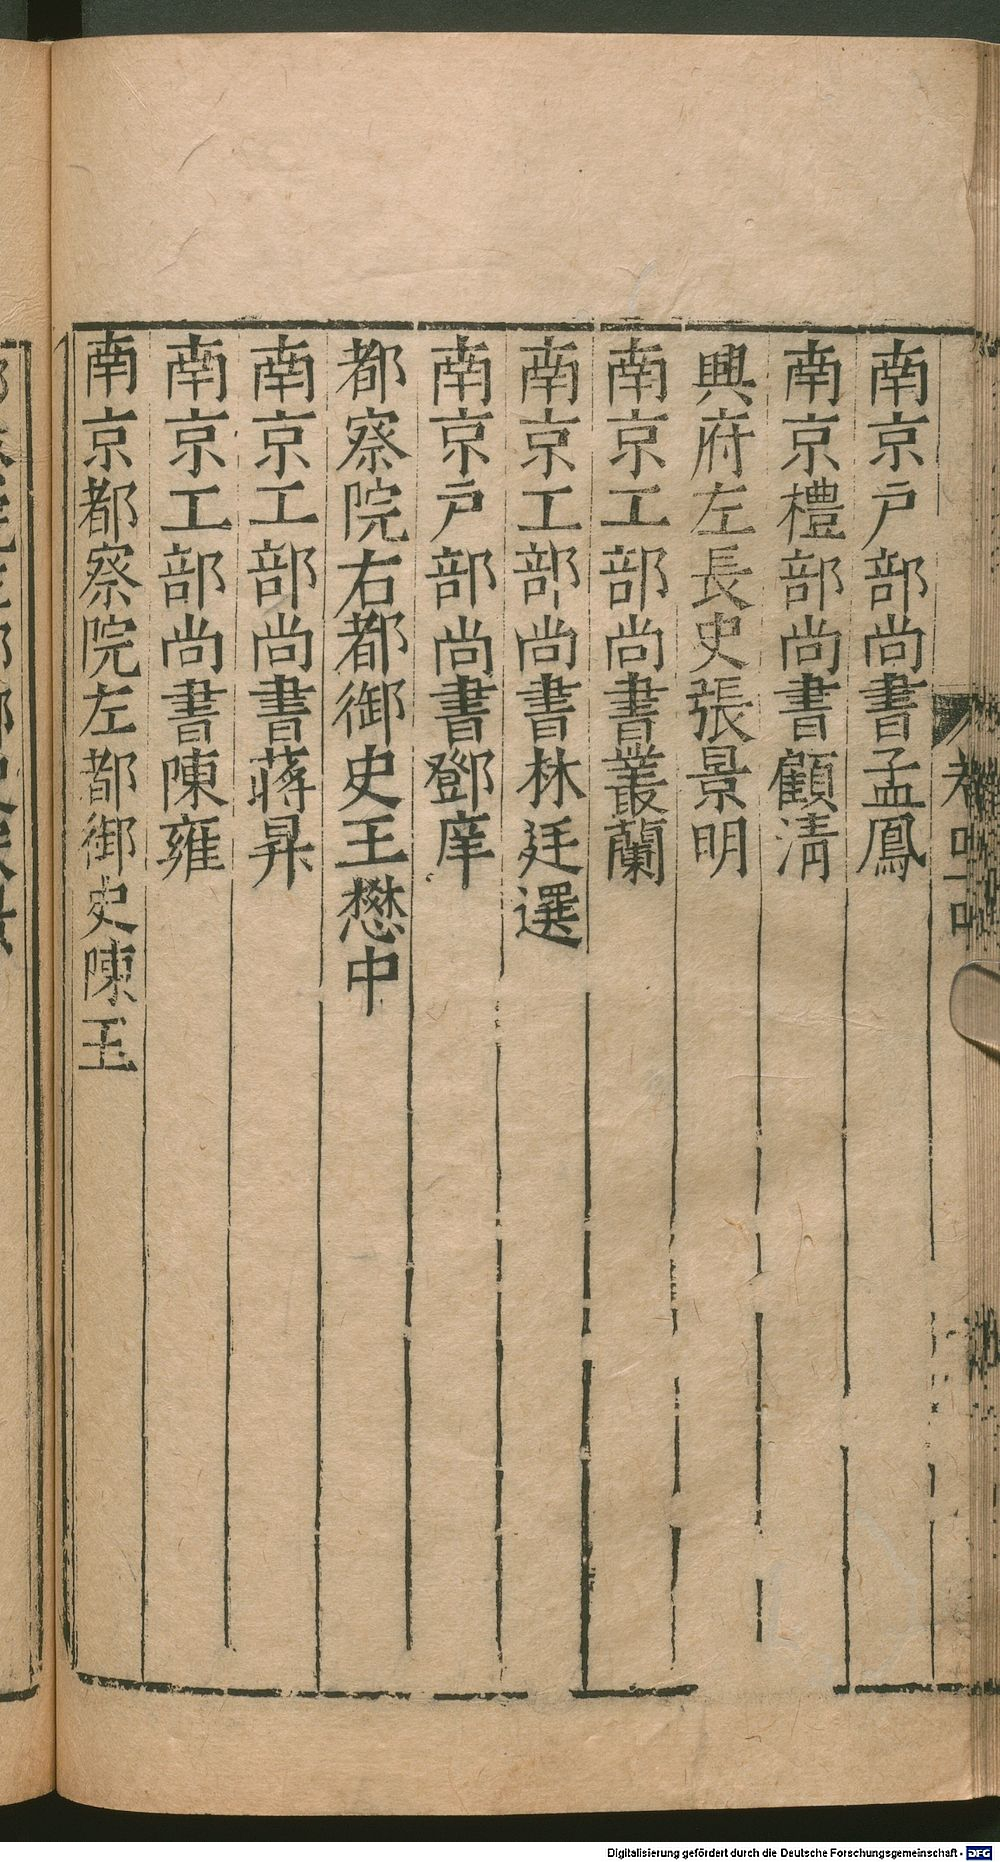 南京戶部尚書孟鳳
南京禮部尚書顧清
興府左長史張景明
南京工部尚書叢蘭
南京工部尚書林廷選
南京戶部尚書鄧庠
都察院右都御史王懋中
南京工部尚書蔣昇
南京工部尚書陳雍
南京都察院左都御史陳玉
Digitalisierung gefördert durch die Deutsche Forschungsgemeinschaft - DFG